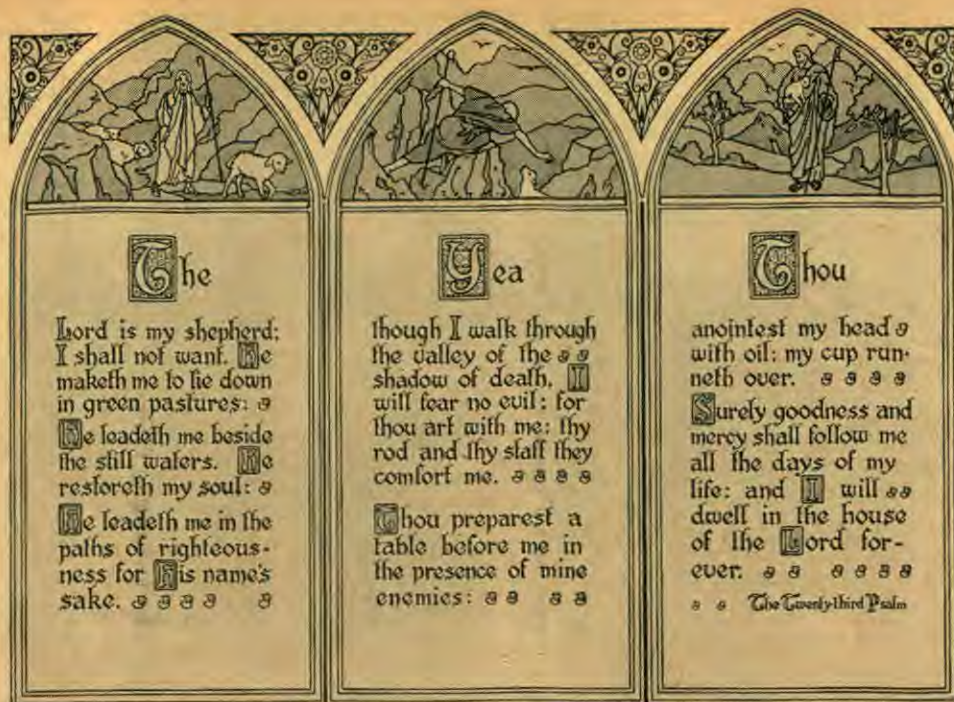 The
Lord is my shepherd:
I shall not want. He
maketh me to lie down
in green pastures:
He leadeth me beside
the still waters. He
restoreth my soul:
He leadeth me in the
paths of righteous-
ness for His name's
sake.
Yea
though I walk through
the valley of the
shadow of death, I
will fear no evil: for
thou art with me: thy
rod and thy staff they
comfort me.
Thou preparest a
table before me in
the presence of mine
enemies:
Thou
anointest my head
with oil: my cup run-
neth over.
Surely goodness and
mercy shall follow me
all the days of my
life: and I will
dwell in the house
of the Lord for-
ever.
The Twenty-third Psalm